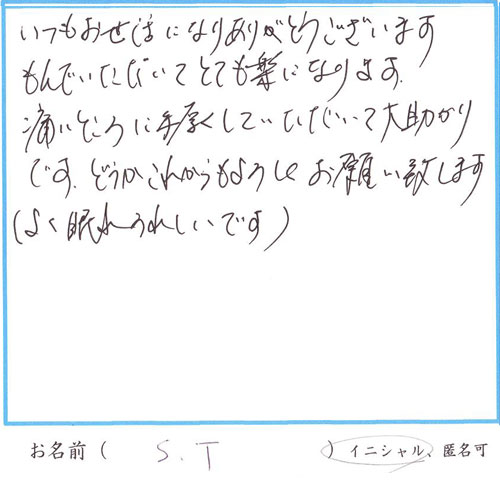 いつもお世話になりありがとうございます
もんでいただいてとても楽になります.
痛いところに手厚くしていただいて大助かり
です.どうかこれからもよろしくお願い致します
(よく眠れうれしいです)
お名前( S.T ) イニシャル、匿名可